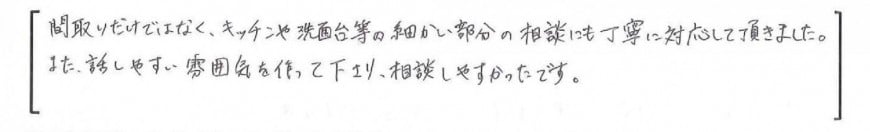 間取りだけではなく、キッチンや洗面台等の細かい部分の相談にも丁寧に対応して頂きました。
また、話しやすい雰囲気を作って下さり、相談しやすかったです。